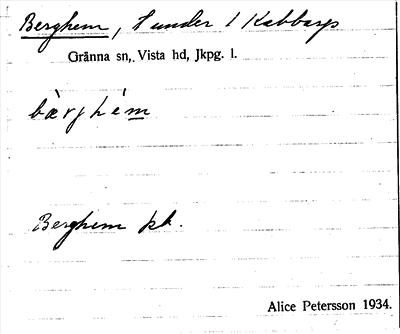 Berghem, t under 1 Kabbarp
Gränna sn, Vista hd, Jkpg. l.
bàrjhèm
Berghem pk.
Alice Petersson 1934.